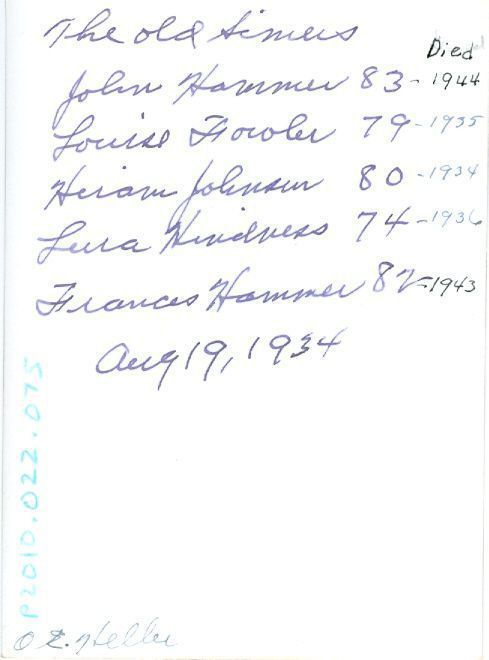 The old timers
Died
John Hammer 83-1944
Louise Fowler 79-1935
Hiram Johnson 80-1934
Lura Kindness 74-1936
Frances Hammer 82-1943
Aug 19, 1934
P2010.022.075
O.E. Heller